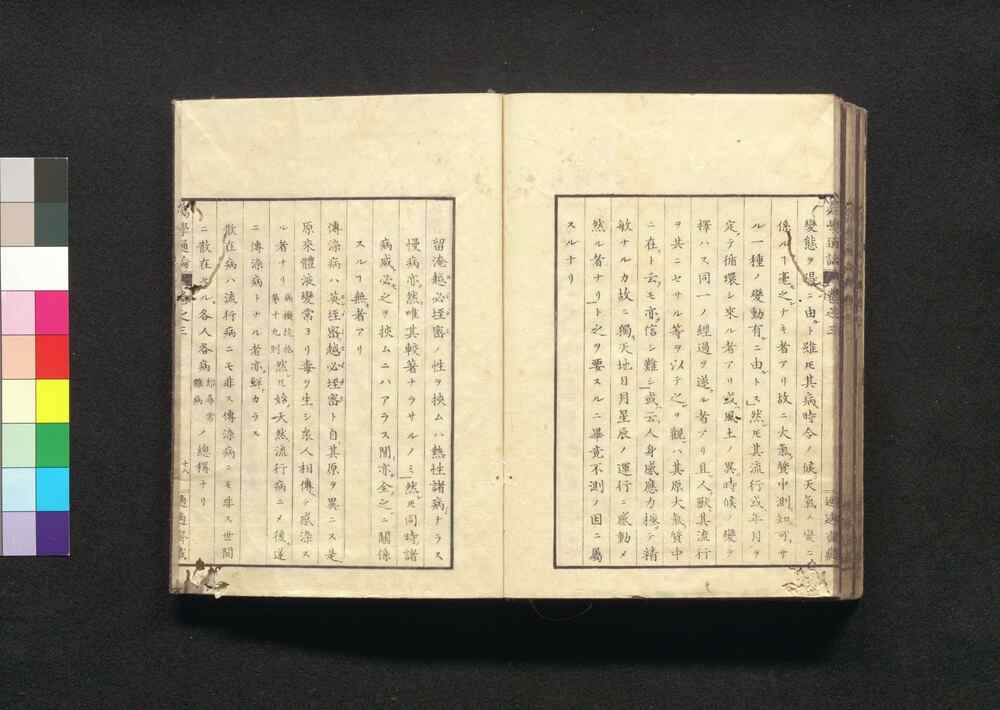 變態ヲ得ニ由ト雖モ其病時令ノ候天氣ノ變ニ
係ルヿ毫之ナキ者アリ故ニ大氣質中測知可サ
ル一種ノ變動有ニ由トス然モ其流行或年月ヲ
定テ循環シ來ル者アリ或風土ノ異時候ノ變ヲ
擇ハス同一ノ經過ヲ遂ル者アリ且人獸其流行
ヲ共ニセサル等ヲ以テ之ヲ觀ハ其原大氣質中
ニ在ト云モ亦信シ難シ或云人身感應力極テ
敏ナルカ故ニ獨天地日月星辰ノ運行ニ感動メ
然ル者ナリト之ヲ要スルニ畢竟不測ノ因ニ屬
スルナリ
留滝越必垤密ノ性ヲ挾ムハ熱性諸病ナラス
慢病亦然唯其較著ナラサルノミ然モ同時諸
病咸必之ヲ挾ムニハアラス間亦全之ニ關係
スルヿ無者アリ
傳染病ハ英垤密越必垤密ト自其原ヲ異ニス是
原來體液變常ヨリ毒ヲ生シ衆人相傳テ感染ス
ル者ナリ
第十九則
然モ始天然流行病ニメ後遂
ニ傳染病トナル者亦鮮カラス
散在病ハ流行病ニモ非ス傳染病ニモ非ス世間
ニ散在スル各人各病
即尋常
雜病
ノ總稱ナリ
病學通論
卷之三
十八
適適齋藏